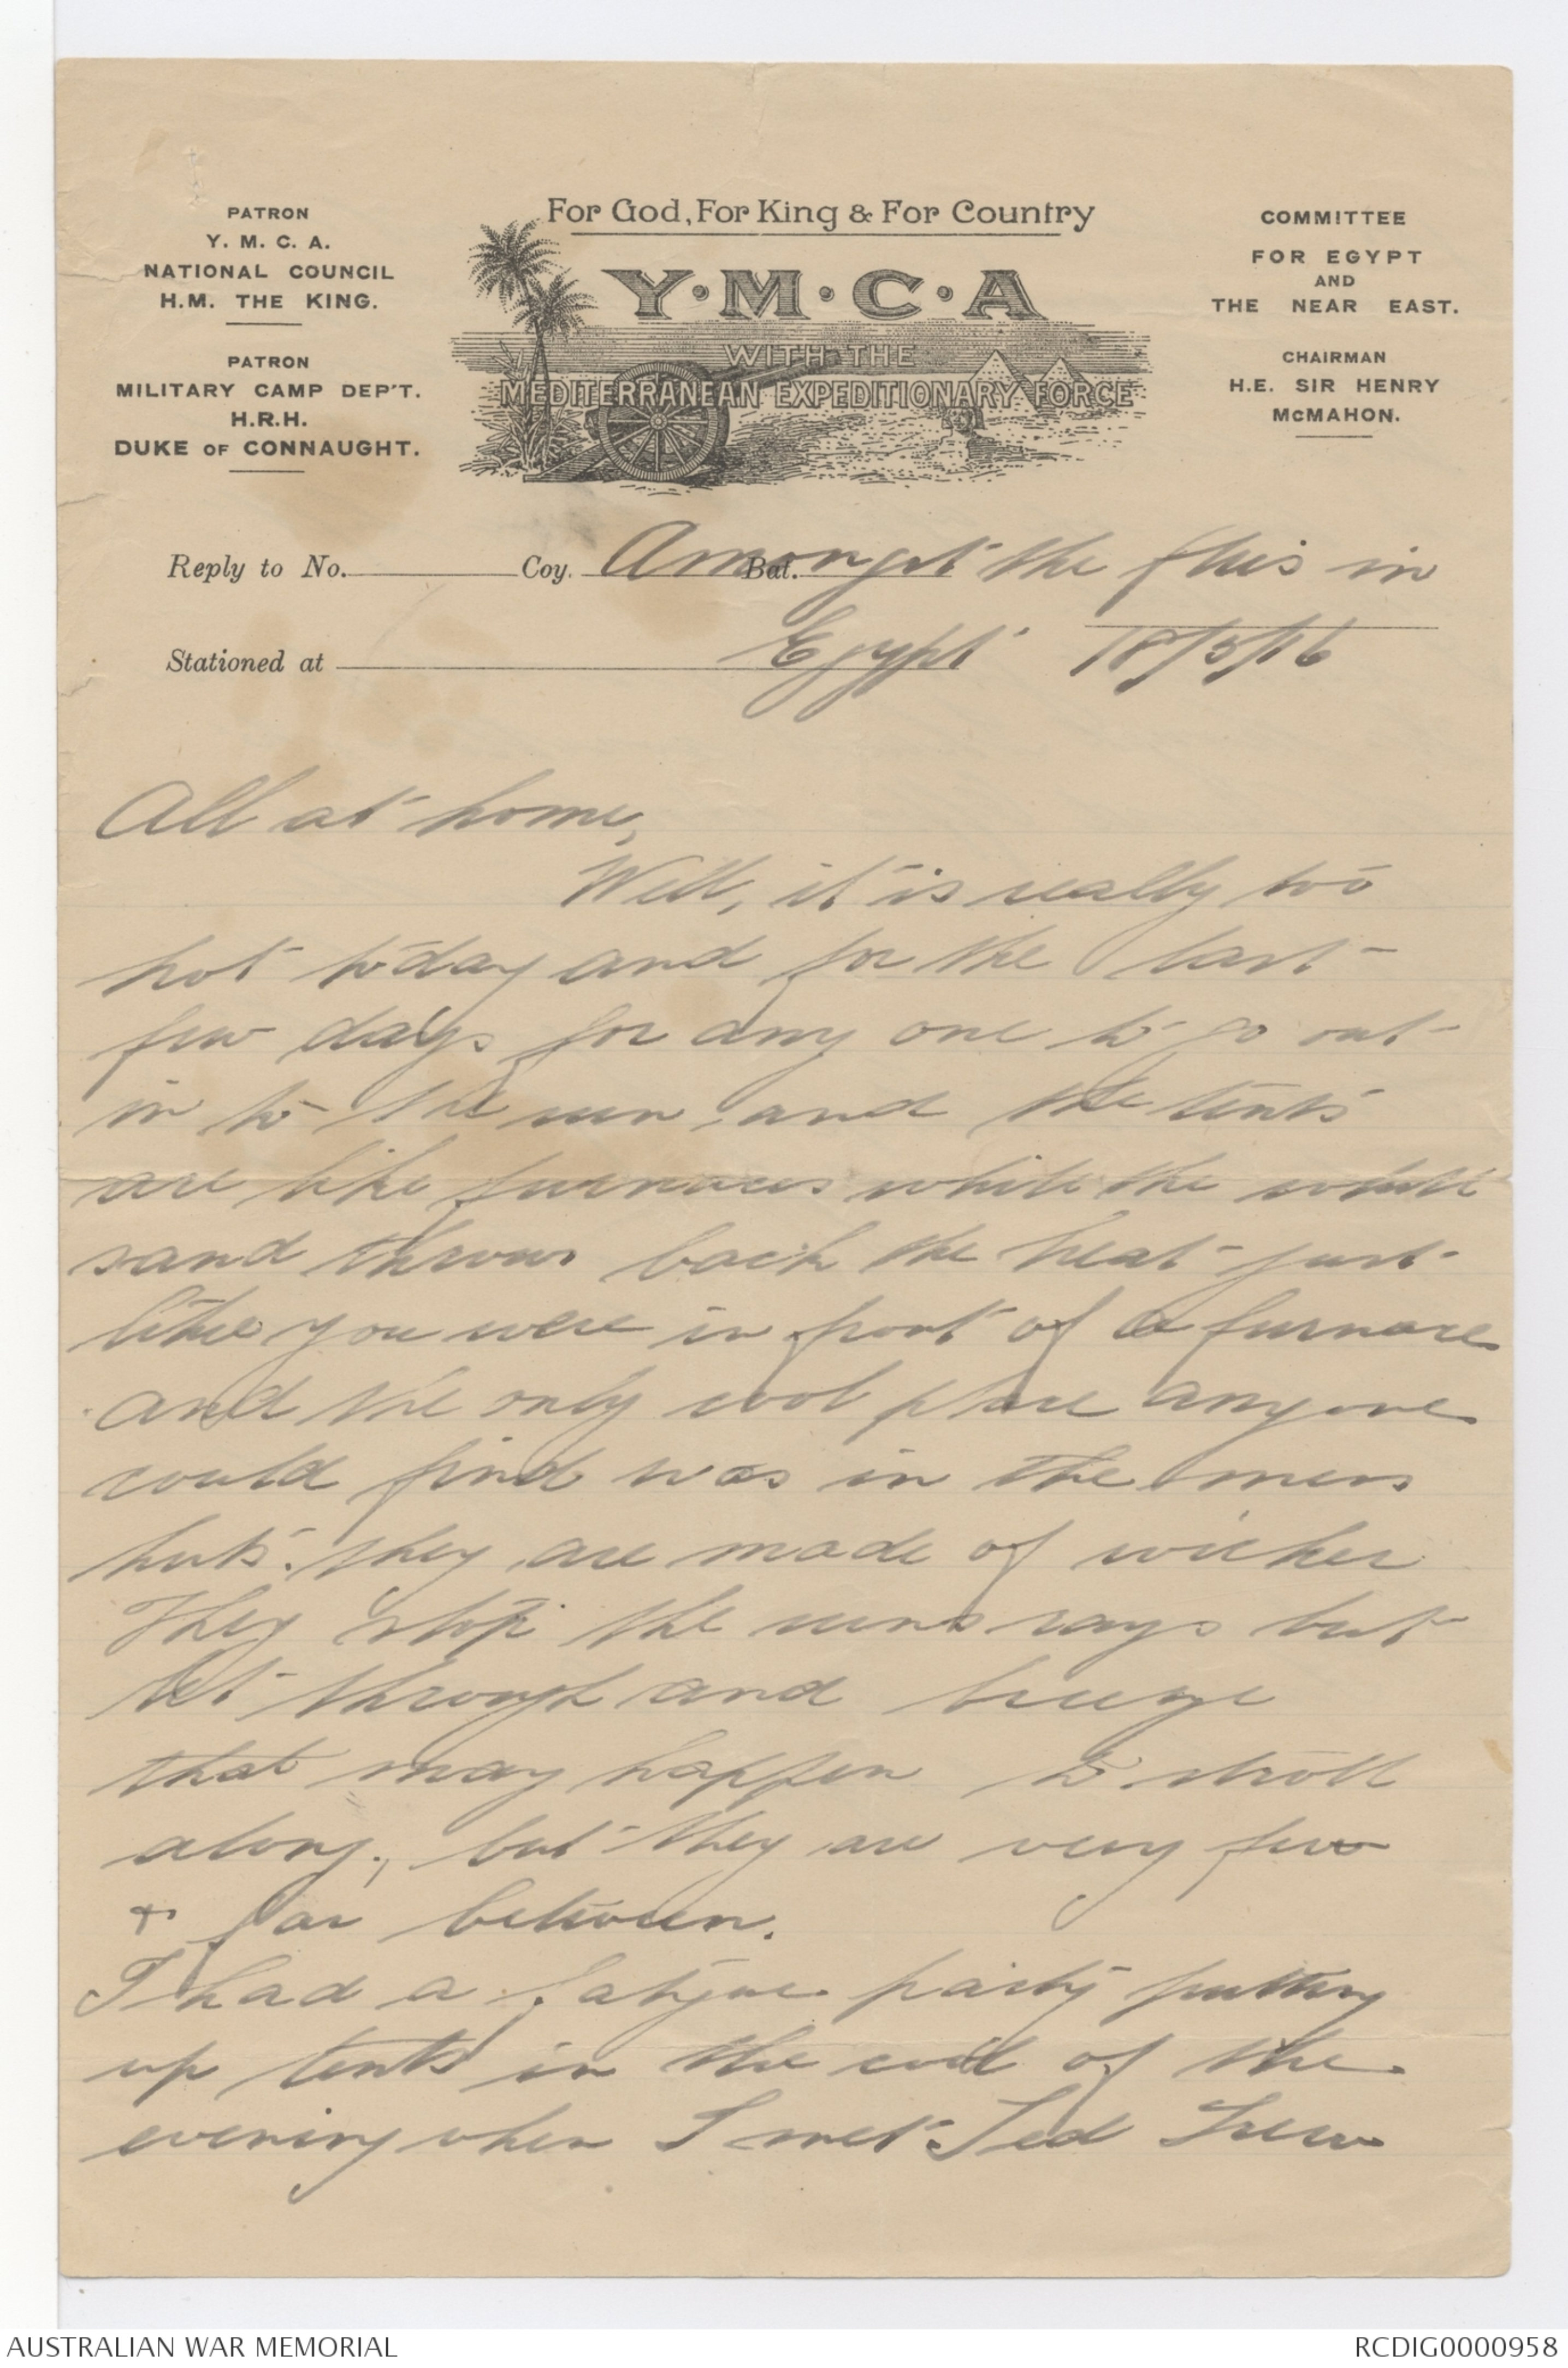 PATRON
Y. M. C. A.
NATIONAL COUNCIL
H.M. THE KING.
PATRON
MILITARY CAMP DEP'T.
H.R.H.
DUKE OF CONNAUGHT.
For God, For King & For Country
Y·M·C·A
WITH THE
MEDITERRANEAN EXPEDITIONARY FORCE
COMMITTEE
FOR EGYPT
AND
THE NEAR EAST.
CHAIRMAN
H.E. SIR HENRY
McMAHON.
Reply to No. Coy. Bat. Amongst the flies in
Stationed at Egypt 18/5/16
All at home,
Well, it is really too
hot today and for the last
few days for any one to go out
in to the sun and the tents
are like furnaces while the white
sand throws back the heat just
like you were in front of a furnace
and the only cool place anyone
could find was in the mess
huts. they are made of wicker
They stop the suns rays but
let through and breeze
that may happen to stroll
along, but they are very few
+ far between.
I had a fatigue party putting
up tents in the cool of the
evening when I met Ted Trew
AUSTRALIAN WAR MEMORIAL
RCDIG0000958